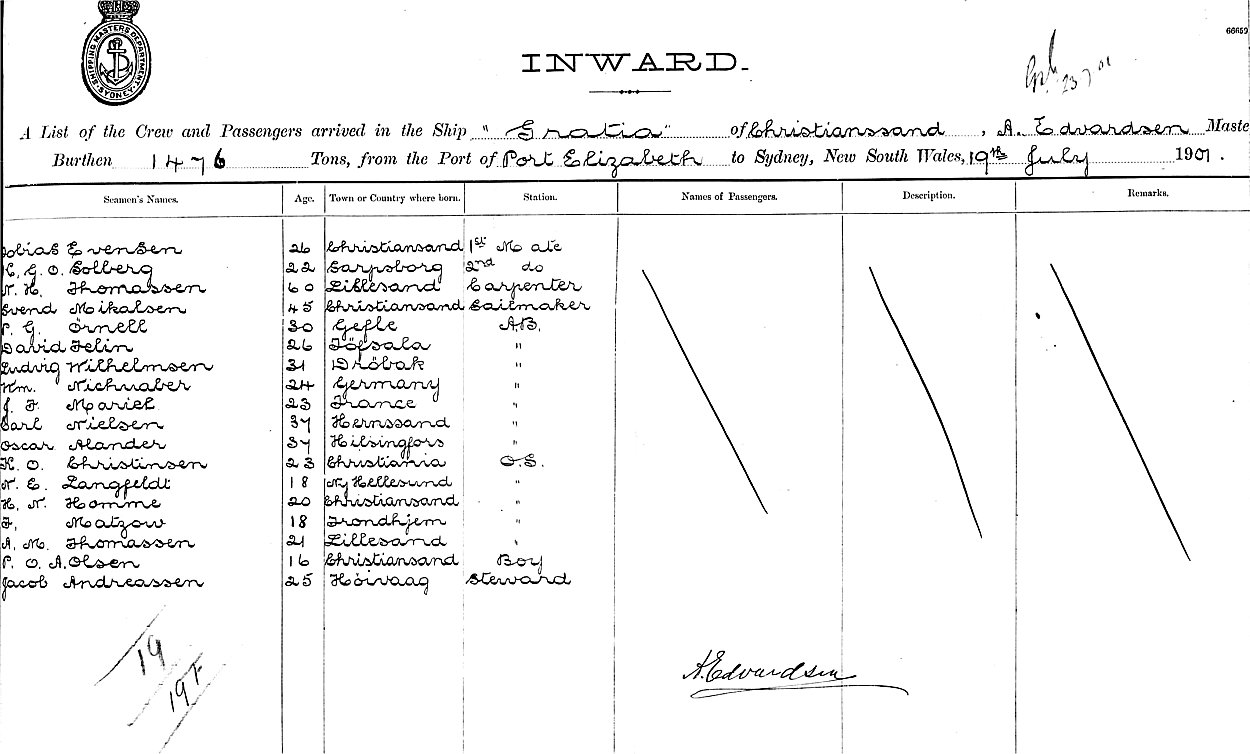 SHIPPING MASTERS DEPARTMENT
SYDNEY
66659
INWARD.
23 7 01
A List of the Crew and Passengers arrived in the Ship "Gratia" of Christianssand, A. Edvardsen Maste
Burthen 1476 Tons, from the Port of Port Elizabeth to Sydney, New South Wales, 19th July 1901.
Seamen's Names. Age. Town or Country where born. Station. Names of Passengers. Description. Remarks.
Tobias Evensen 26 Christiansand 1st Mate
K. G. O. Solberg 22 Sarpsborg 2nd do
N. H. Thomassen 60 Lillesand Carpenter
Svend Mikalsen 45 Christiansand Sailmaker
P. G. Örnell 30 Gefle A.B.
David Felin 26 Töfsala "
Ludvig Wilhelmsen 31 Dröbak "
Wm. Nichuaber 24 Germany "
J. F. Mariel 23 France "
Carl Nielsen 37 Hernssand "
Oscar Alander 37 Hilsingfors "
K. O. Christinsen 23 Christiania O.S.
N. E. Langfeldt 18 Ny Hellesund "
H. N. Homme 20 Christiansand "
F. Matzow 18 Trondhjem "
A. M. Thomassen 21 Lillesand "
P. O. A. Olsen 16 Christiansand Boy
Jacob Andreassen 25 Höivaag Steward
19
A. Edvardsen